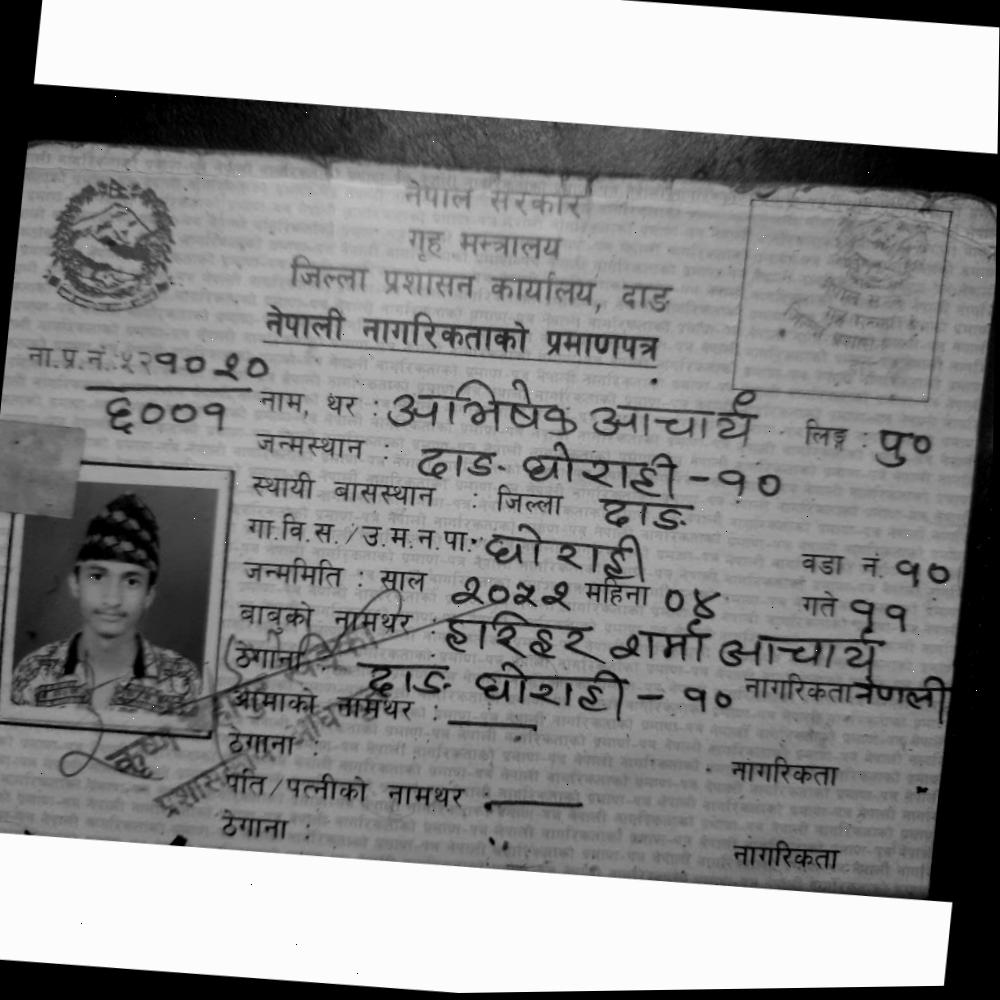 नेपाल सरकार
गृह मन्त्रालय
जिल्ला प्रशासन कार्यालय, दाङ
नेपाली नागरिकताको प्रमाणपत्र
ना.प्र.नं. ५२१०२०
६००१
नाम, थर : अभिषेक आचार्य लिङ्ग : पु०
जन्मस्थान : दाङ घोराही - १०
स्थायी बासस्थान : जिल्ला दाङ
गा.वि.स./उ.म.न.पा. घोराही वडा नं. १०
जन्ममिति : साल २०५२ महिना ०४ गते ११
बाबुको नामथर : हरिहर शर्मा आचार्य
ठेगाना : दाङ घोराही - १० नागरिकता नेपाली
आमाको नामथर :
ठेगाना : नागरिकता
पति/पत्नीको नामथर :
ठेगाना : नागरिकता